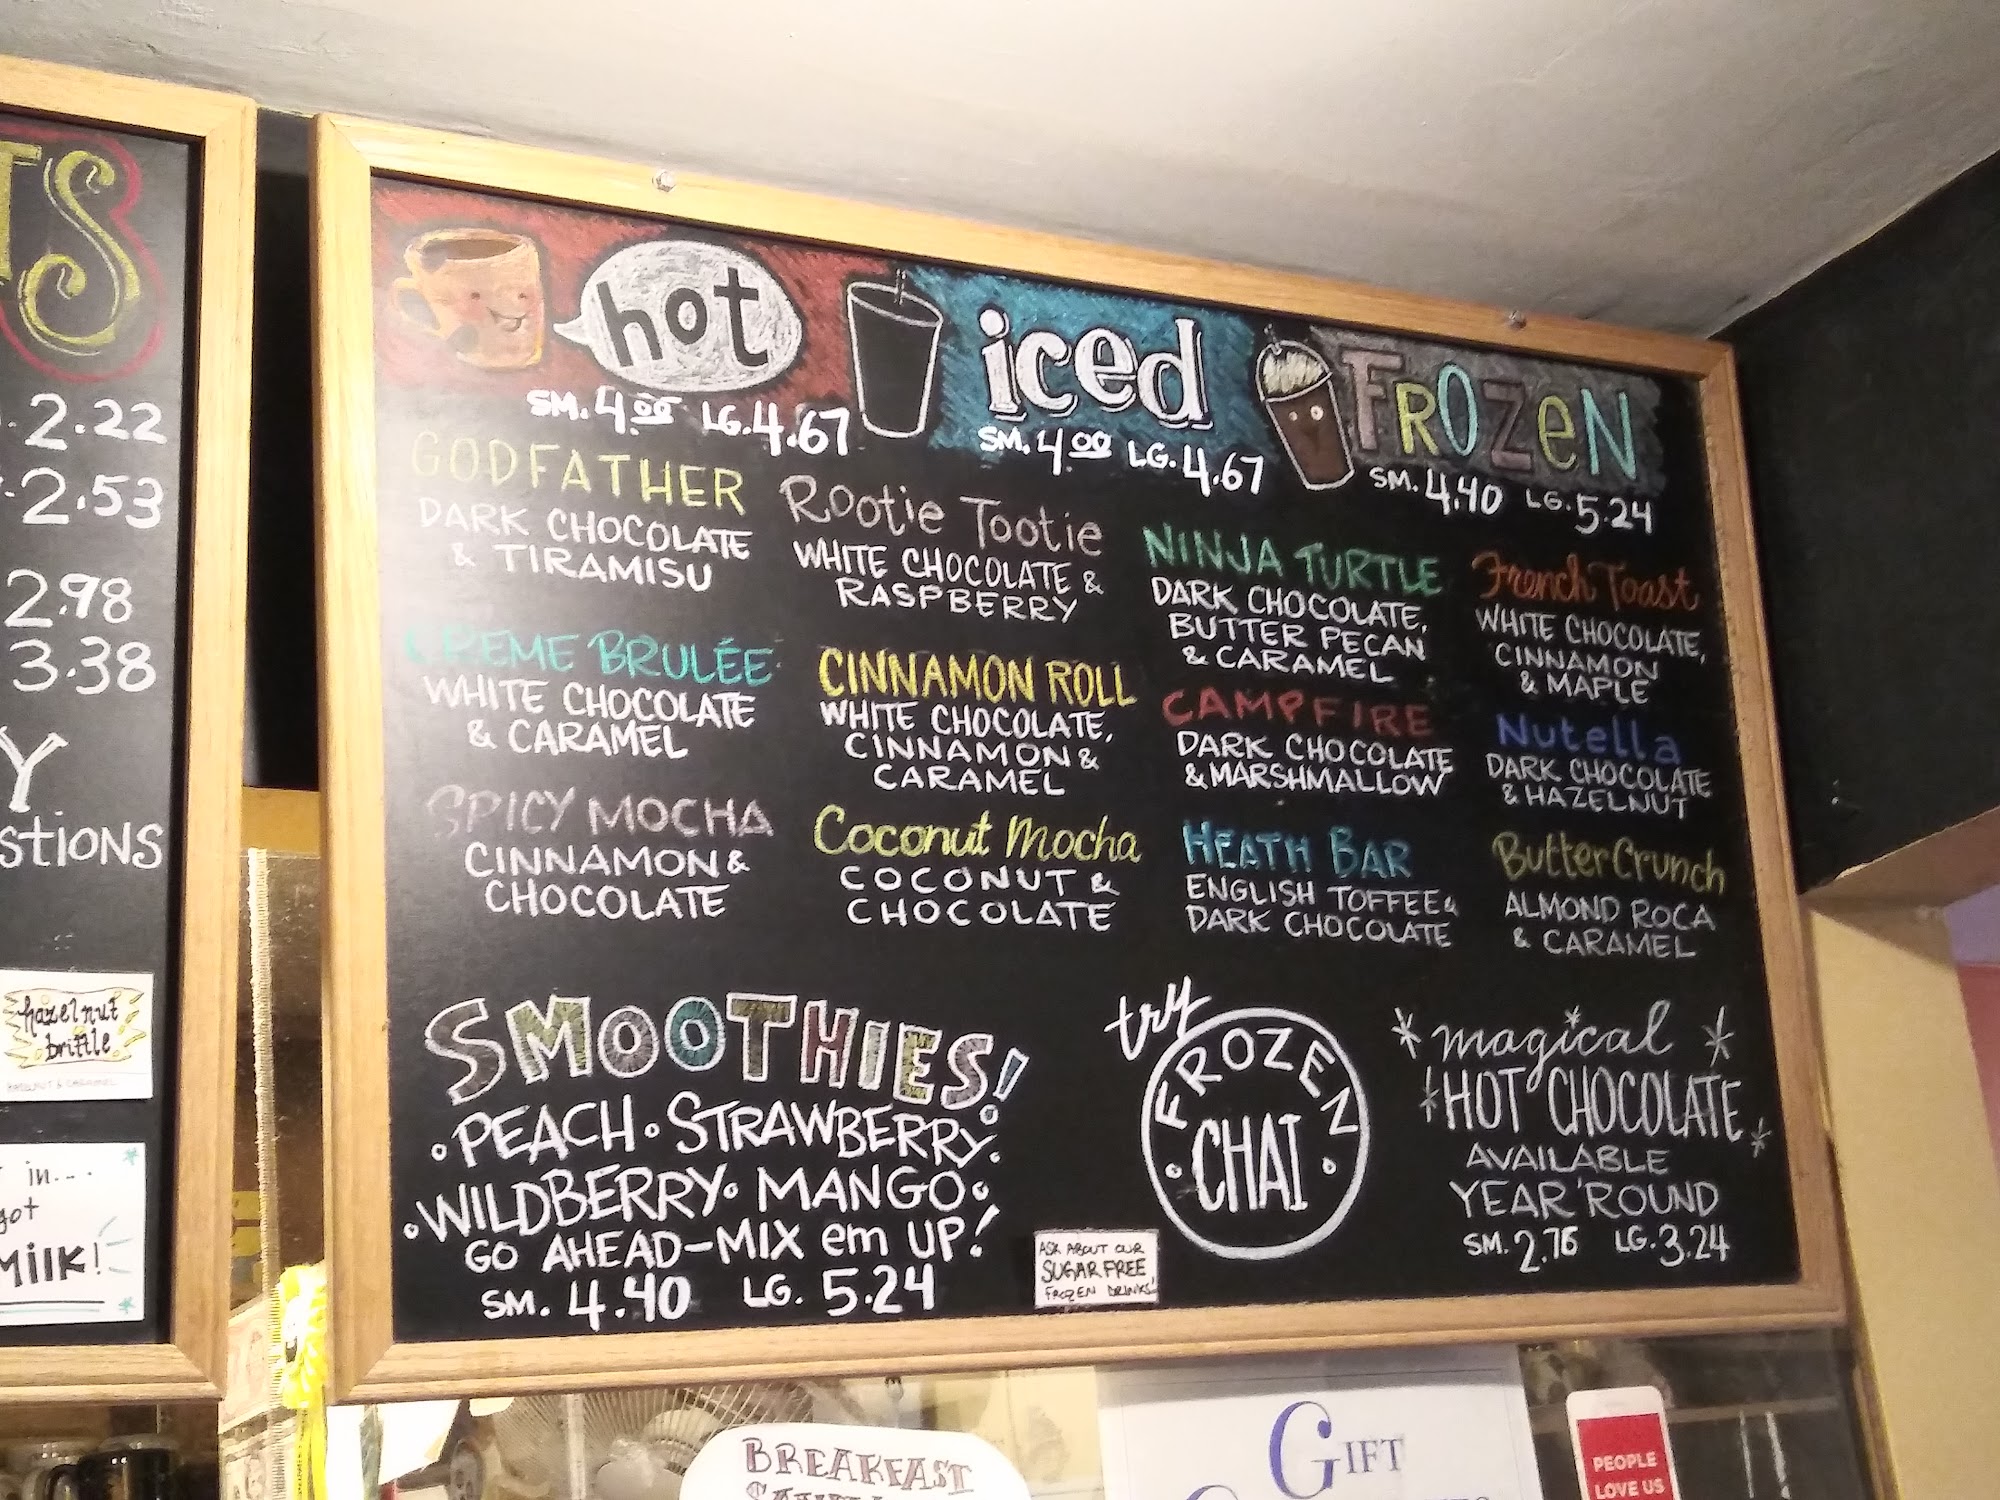 TS
2.22
2.53
2.98
3.38
Y
STIONS
hazelnut
brittle
HAZELNUT & CARAMEL
in...
got
MilK!
hot
SM. 4.00 LG. 4.67
iced
SM. 4.00 LG. 4.67
FROZeN
SM. 4.40 LG. 5.24
GODFATHER
DARK CHOCOLATE
& TIRAMISU
CREME BRULÉE
WHITE CHOCOLATE
& CARAMEL
SPICY MOCHA
CINNAMON &
CHOCOLATE
Rootie Tootie
WHITE CHOCOLATE &
RASPBERRY
CINNAMON ROLL
WHITE CHOCOLATE,
CINNAMON &
CARAMEL
Coconut Mocha
COCONUT &
CHOCOLATE
NINJA TURTLE
DARK CHOCOLATE,
BUTTER PECAN
& CARAMEL
CAMPFIRE
DARK CHOCOLATE
& MARSHMALLOW
HEATH BAR
ENGLISH TOFFEE &
DARK CHOCOLATE
French Toast
WHITE CHOCOLATE,
CINNAMON
& MAPLE
Nutella
DARK CHOCOLATE
& HAZELNUT
ButterCrunch
ALMOND ROCA
& CARAMEL
SMOOTHIES!
• PEACH • STRAWBERRY •
• WILDBERRY • MANGO •
GO AHEAD - MIX em UP!
SM. 4.40 LG. 5.24
ASK ABOUT OUR
SUGAR FREE
FROZEN DRINKS!
try
FROZEN
• CHAI •
magical
HOT CHOCOLATE
AVAILABLE
YEAR 'ROUND
SM. 2.76 LG. 3.24
BREAKFAST
GIFT
PEOPLE
LOVE US